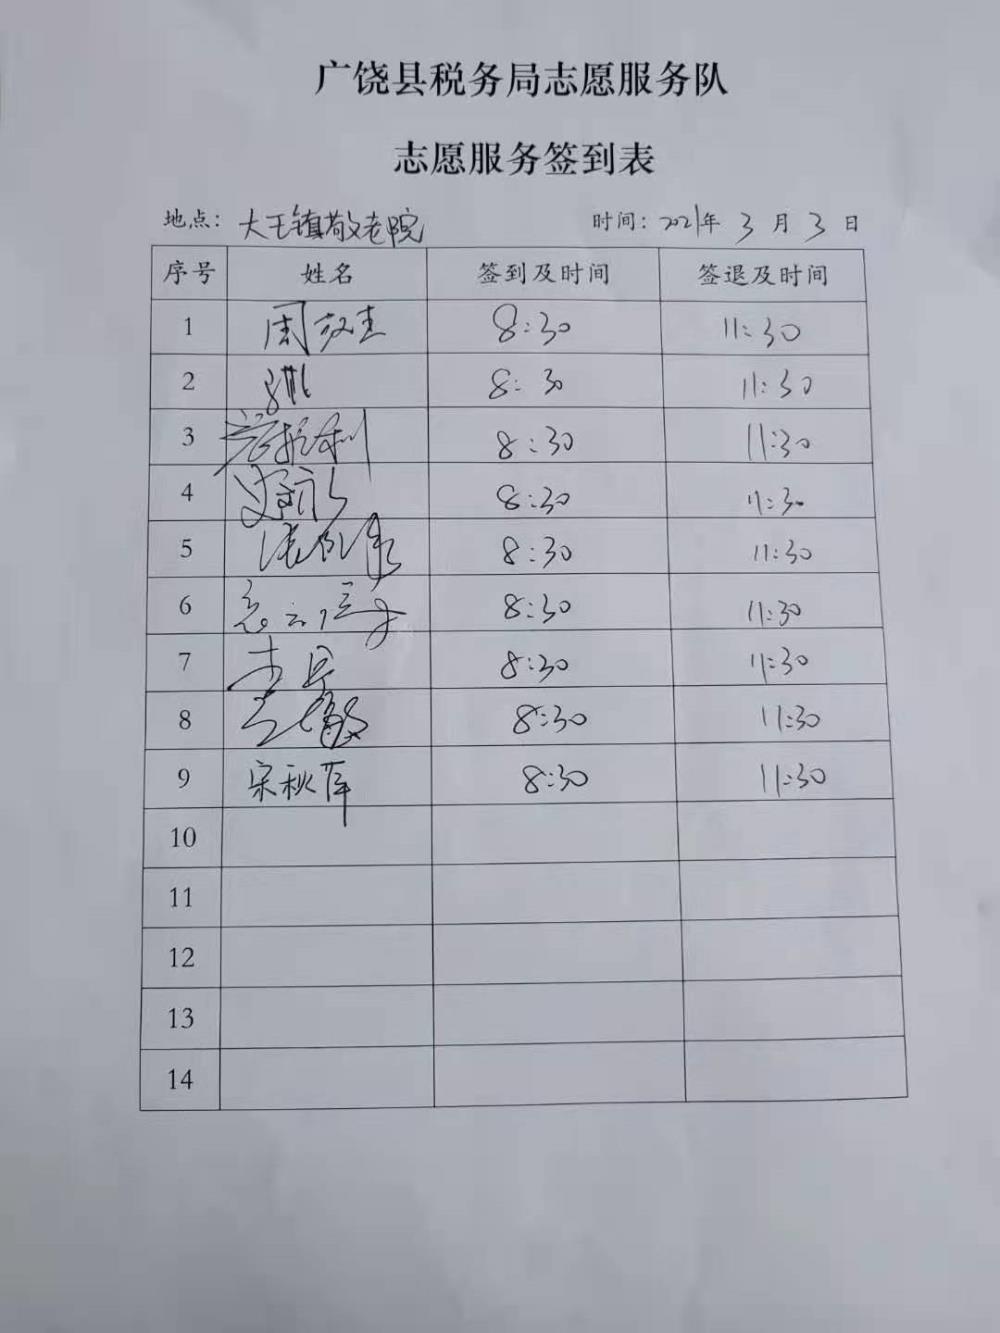 广饶县税务局志愿服务队
志愿服务签到表
地点：大王镇敬老院 时间：2021年 3 月 3 日
序号 姓名 签到及时间 签退及时间
1 周 8:30 11:30
2 8:30 11:30
3 8:30 11:30
4 8:30 11:30
5 8:30 11:30
6 8:30 11:30
7 8:30 11:30
8 8:30 11:30
9 宋秋萍 8:30 11:30
10
11
12
13
14